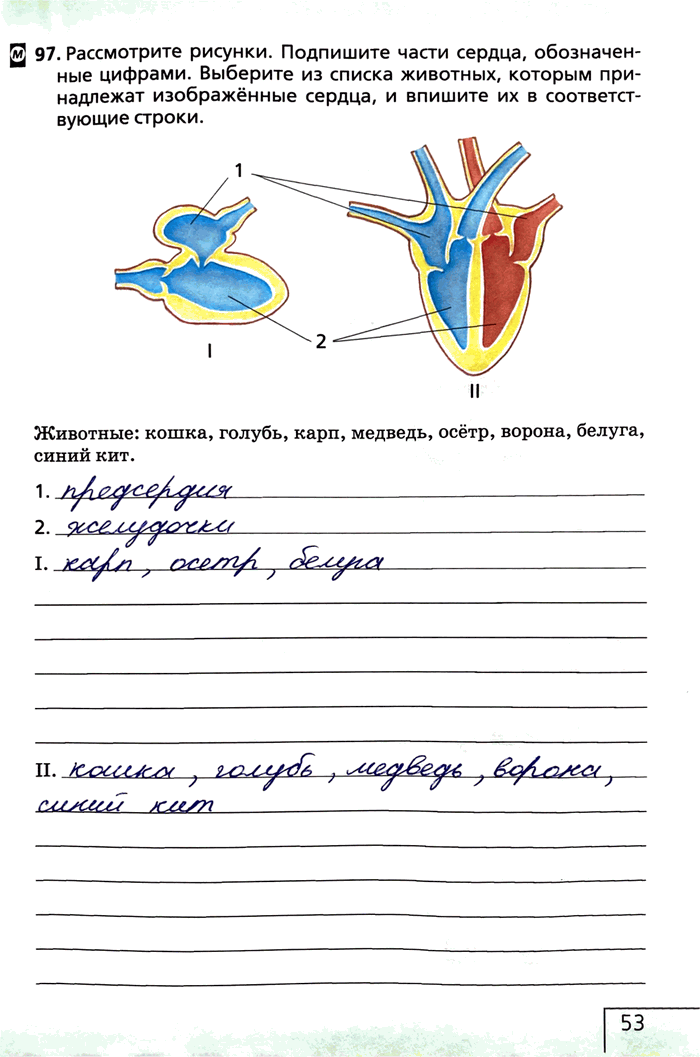 М 97. Рассмотрите рисунки. Подпишите части сердца, обозначен-
ные цифрами. Выберите из списка животных, которым при-
надлежат изображённые сердца, и впишите их в соответст-
вующие строки.
1
2
I
II
Животные: кошка, голубь, карп, медведь, осётр, ворона, белуга,
синий кит.
1. предсердия
2. желудочки
I. карп, осетр, белуга
II. кошка, голубь, медведь, ворона,
синий кит
53